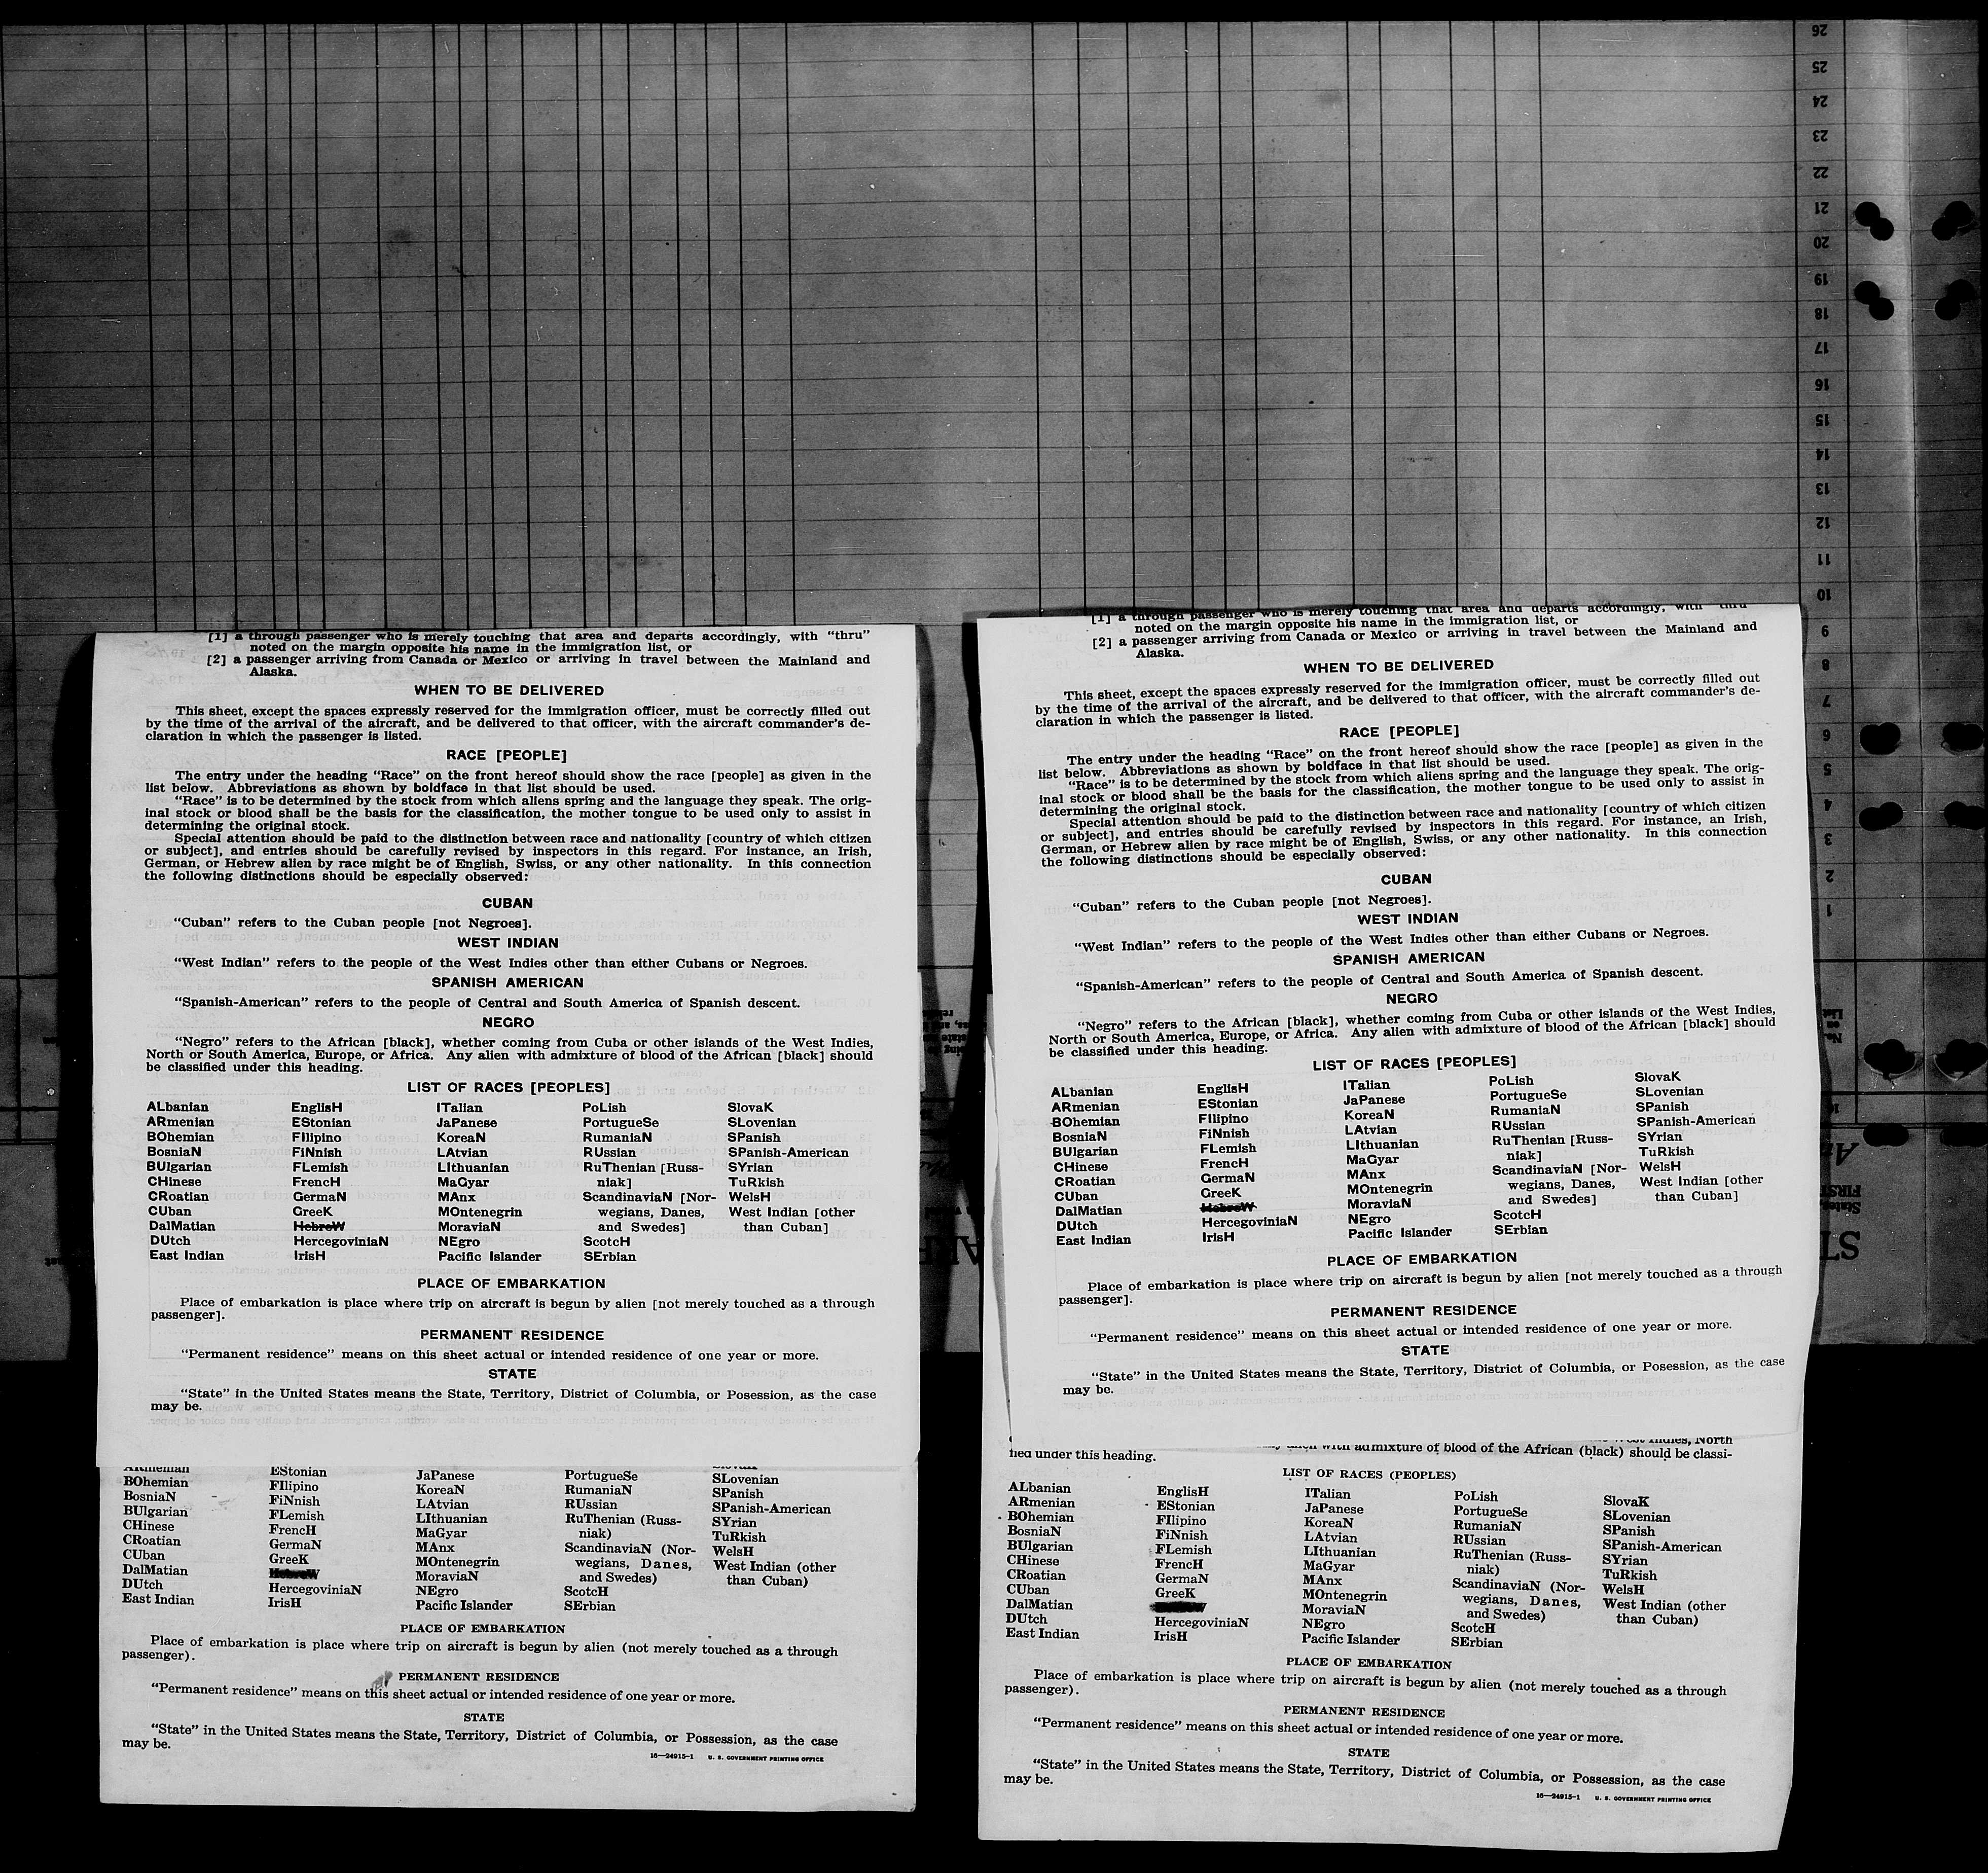 [1] a through passenger who is merely touching that area and departs accordingly, with “thru”
noted on the margin opposite his name in the immigration list, or
[2] a passenger arriving from Canada or Mexico or arriving in travel between the Mainland and
Alaska.
WHEN TO BE DELIVERED
This sheet, except the spaces expressly reserved for the immigration officer, must be correctly filled out
by the time of the arrival of the aircraft, and be delivered to that officer, with the aircraft commander's de-
claration in which the passenger is listed.
RACE [PEOPLE]
The entry under the heading “Race” on the front hereof should show the race [people] as given in the
list below. Abbreviations as shown by boldface in that list should be used.
“Race” is to be determined by the stock from which aliens spring and the language they speak. The orig-
inal stock or blood shall be the basis for the classification, the mother tongue to be used only to assist in
determining the original stock.
Special attention should be paid to the distinction between race and nationality [country of which citizen
or subject], and entries should be carefully revised by inspectors in this regard. For instance, an Irish,
German, or Hebrew alien by race might be of English, Swiss, or any other nationality. In this connection
the following distinctions should be especially observed:
CUBAN
“Cuban” refers to the Cuban people [not Negroes].
WEST INDIAN
“West Indian” refers to the people of the West Indies other than either Cubans or Negroes.
SPANISH AMERICAN
“Spanish-American” refers to the people of Central and South America of Spanish descent.
NEGRO
“Negro” refers to the African [black], whether coming from Cuba or other islands of the West Indies,
North or South America, Europe, or Africa. Any alien with admixture of blood of the African [black] should
be classified under this heading.
LIST OF RACES [PEOPLES]
ALbanian EnglisH ITalian PoLish SlovaK
ARmenian EStonian JaPanese PortugueSe SLovenian
BOhemian FIlipino KoreaN RumaniaN SPanish
BosniaN FiNnish LAtvian RUssian SPanish-American
BUlgarian FLemish LIthuanian RuThenian [Russ- SYrian
CHinese FrencH MaGyar niak] TuRkish
CRoatian GermaN MAnx ScandinaviaN [Nor- WelsH
CUban GreeK MOntenegrin wegians, Danes, West Indian [other
DalMatian HebreW MoraviaN and Swedes] than Cuban]
DUtch HercegoviniaN NEgro ScotcH
East Indian IrisH Pacific Islander SErbian
PLACE OF EMBARKATION
Place of embarkation is place where trip on aircraft is begun by alien [not merely touched as a through
passenger].
PERMANENT RESIDENCE
“Permanent residence” means on this sheet actual or intended residence of one year or more.
STATE
“State” in the United States means the State, Territory, District of Columbia, or Posession, as the case
may be.
ARmenian EStonian JaPanese PortugueSe SLovenian
BOhemian FIlipino KoreaN RumaniaN SPanish
BosniaN FiNnish LAtvian RUssian SPanish-American
BUlgarian FLemish LIthuanian RuThenian (Russ- SYrian
CHinese FrencH MaGyar niak) TuRkish
CRoatian GermaN MAnx ScandinaviaN (Nor- WelsH
CUban GreeK MOntenegrin wegians, Danes, West Indian (other
DalMatian HebreW MoraviaN and Swedes) than Cuban)
DUtch HercegoviniaN NEgro ScotcH
East Indian IrisH Pacific Islander SErbian
PLACE OF EMBARKATION
Place of embarkation is place where trip on aircraft is begun by alien (not merely touched as a through
passenger).
PERMANENT RESIDENCE
“Permanent residence” means on this sheet actual or intended residence of one year or more.
STATE
“State” in the United States means the State, Territory, District of Columbia, or Possession, as the case
may be.
16—24915-1 U. S. GOVERNMENT PRINTING OFFICE
[1] a through passenger who is merely touching that area and departs accordingly, with “thru”
noted on the margin opposite his name in the immigration list, or
[2] a passenger arriving from Canada or Mexico or arriving in travel between the Mainland and
Alaska.
WHEN TO BE DELIVERED
This sheet, except the spaces expressly reserved for the immigration officer, must be correctly filled out
by the time of the arrival of the aircraft, and be delivered to that officer, with the aircraft commander's de-
claration in which the passenger is listed.
RACE [PEOPLE]
The entry under the heading “Race” on the front hereof should show the race [people] as given in the
list below. Abbreviations as shown by boldface in that list should be used.
“Race” is to be determined by the stock from which aliens spring and the language they speak. The orig-
inal stock or blood shall be the basis for the classification, the mother tongue to be used only to assist in
determining the original stock.
Special attention should be paid to the distinction between race and nationality [country of which citizen
or subject], and entries should be carefully revised by inspectors in this regard. For instance, an Irish,
German, or Hebrew alien by race might be of English, Swiss, or any other nationality. In this connection
the following distinctions should be especially observed:
CUBAN
“Cuban” refers to the Cuban people [not Negroes].
WEST INDIAN
“West Indian” refers to the people of the West Indies other than either Cubans or Negroes.
SPANISH AMERICAN
“Spanish-American” refers to the people of Central and South America of Spanish descent.
NEGRO
“Negro” refers to the African [black], whether coming from Cuba or other islands of the West Indies,
North or South America, Europe, or Africa. Any alien with admixture of blood of the African [black] should
be classified under this heading.
LIST OF RACES [PEOPLES]
ALbanian EnglisH ITalian PoLish SlovaK
ARmenian EStonian JaPanese PortugueSe SLovenian
BOhemian FIlipino KoreaN RumaniaN SPanish
BosniaN FiNnish LAtvian RUssian SPanish-American
BUlgarian FLemish LIthuanian RuThenian [Russ- SYrian
CHinese FrencH MaGyar niak] TuRkish
CRoatian GermaN MAnx ScandinaviaN [Nor- WelsH
CUban GreeK MOntenegrin wegians, Danes, West Indian [other
DalMatian HebreW MoraviaN and Swedes] than Cuban]
DUtch HercegoviniaN NEgro ScotcH
East Indian IrisH Pacific Islander SErbian
PLACE OF EMBARKATION
Place of embarkation is place where trip on aircraft is begun by alien [not merely touched as a through
passenger].
PERMANENT RESIDENCE
“Permanent residence” means on this sheet actual or intended residence of one year or more.
STATE
“State” in the United States means the State, Territory, District of Columbia, or Posession, as the case
may be.
West Indies, North
with admixture of blood of the African (black) should be classi-
fied under this heading.
LIST OF RACES (PEOPLES)
ALbanian EnglisH ITalian PoLish SlovaK
ARmenian EStonian JaPanese PortugueSe SLovenian
BOhemian FIlipino KoreaN RumaniaN SPanish
BosniaN FiNnish LAtvian RUssian SPanish-American
BUlgarian FLemish LIthuanian RuThenian (Russ- SYrian
CHinese FrencH MaGyar niak) TuRkish
CRoatian GermaN MAnx ScandinaviaN (Nor- WelsH
CUban GreeK MOntenegrin wegians, Danes, West Indian (other
DalMatian MoraviaN and Swedes) than Cuban)
DUtch HercegoviniaN NEgro ScotcH
East Indian IrisH Pacific Islander SErbian
PLACE OF EMBARKATION
Place of embarkation is place where trip on aircraft is begun by alien (not merely touched as a through
passenger).
PERMANENT RESIDENCE
“Permanent residence” means on this sheet actual or intended residence of one year or more.
STATE
“State” in the United States means the State, Territory, District of Columbia, or Possession, as the case
may be.
16—24915-1 U. S. GOVERNMENT PRINTING OFFICE
26
25
24
23
22
21
20
19
18
17
16
15
14
13
12
11
10
9
8
7
6
5
4
3
2
1
No. on List
FIRST
ST